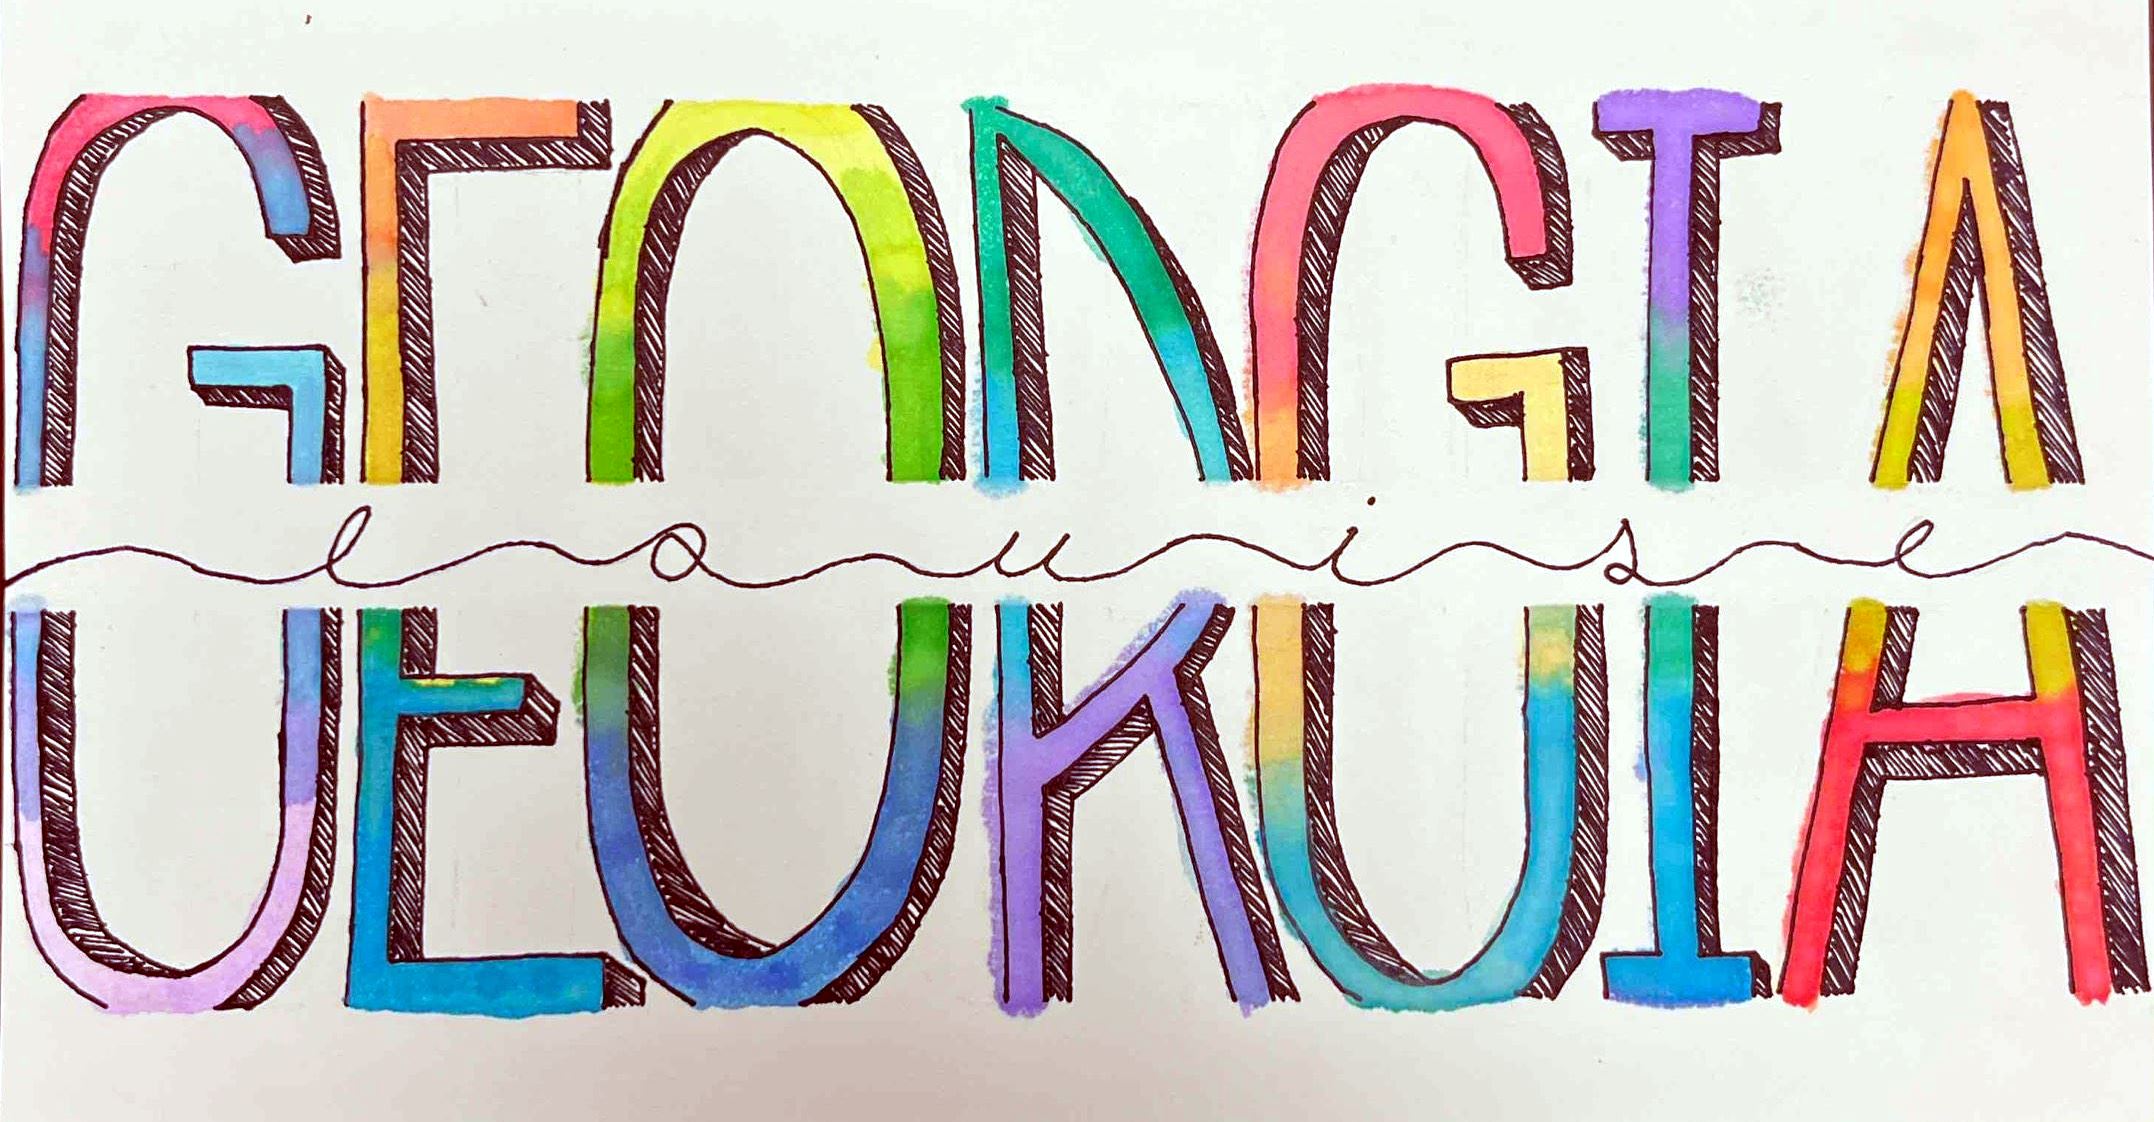 GEORGIA
louise